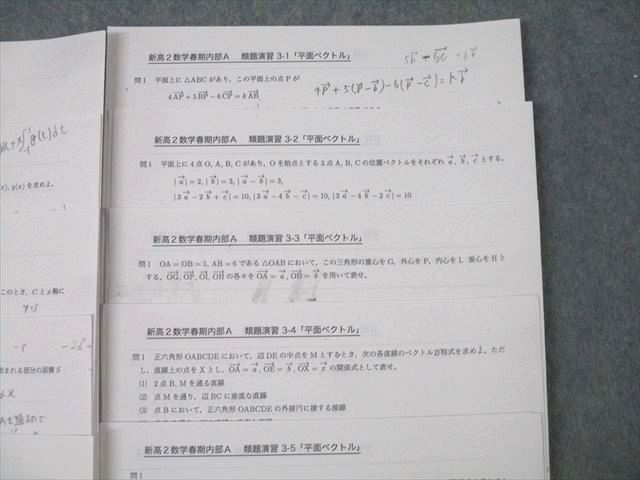 新高2数学春期内部A 類題演習 3-1「平面ベクトル」
問1 平面上に △ABC があり，この平面上の点 P が
4AP + 5BP − 6CP = kAB
4p + 5(p − b) − 6(p − c) = k b
新高2数学春期内部A 類題演習 3-2「平面ベクトル」
問1 平面上に4点 O, A, B, C があり，O を始点とする3点 A, B, C の位置ベクトルをそれぞれ a, b, c とする．
|a| = 2, |b| = 3, |a − b| = 3,
|3a − 2b + c| = 10, |3a − 4b − c| = 10, |3a − 4b − 2c| = 10
新高2数学春期内部A 類題演習 3-3「平面ベクトル」
問1 OA = OB = 5, AB = 6 である △OAB において，この三角形の重心を G，外心を P，内心を I，垂心を H と
する．OG, OP, OI, OH の各々を OA = a, OB = b を用いて表せ．
新高2数学春期内部A 類題演習 3-4「平面ベクトル」
問1 正六角形 OABCDE において，辺 DE の中点を M とするとき，次の各直線のベクトル方程式を求めよ．ただ
し，直線上の点を X とし，OA = a, OE = b, OX = x の関係式として表せ．
(1) 2点 B, M を通る直線
(2) 点 M を通り，辺 BC に垂直な直線
(3) 点 B において，正六角形 OABCDE の外接円に接する接線
新高2数学春期内部A 類題演習 3-5「平面ベクトル」
問1
g(t)dt
g(x) を求めよ．
このとき，C と x 軸に
まれる部分の面積 S